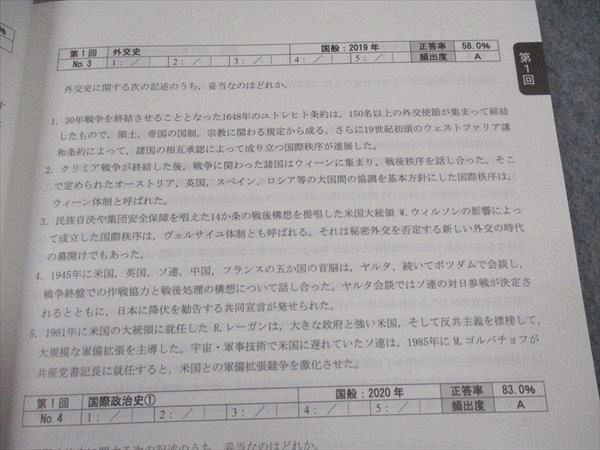 第1回 外交史 国般：2019年 正答率 58.0%
No.3 1: ／ 2: ／ 3: ／ 4: ／ 5: ／ 頻出度 A
第1回
外交史に関する次の記述のうち，妥当なのはどれか。
1．30年戦争を終結させることとなった1648年のユトレヒト条約は，150名以上の外交使節が集まって締結
したもので，領土，帝国の国制，宗教に関わる規定から成る。さらに19世紀初頭のウェストファリア講
和条約によって，諸国の相互承認によって成り立つ国際秩序が進展した。
2．クリミア戦争が終結した後，戦争に関わった諸国はウィーンに集まり，戦後秩序を話し合った。そこ
で定められたオーストリア，英国，スペイン，ロシア等の大国間の協調を基本方針にした国際秩序は，
ウィーン体制と呼ばれた。
3．民族自決や集団安全保障を唱えた14か条の戦後構想を提唱した米国大統領 W.ウィルソンの影響によっ
て成立した国際秩序は，ヴェルサイユ体制とも呼ばれる。それは秘密外交を否定する新しい外交の時代
の幕開けでもあった。
4．1945年に米国，英国，ソ連，中国，フランスの五か国の首脳は，ヤルタ，続いてポツダムで会談し，
戦争終盤での作戦協力と戦後処理の構想について話し合った。ヤルタ会談ではソ連の対日参戦が決定さ
れるとともに，日本に降伏を勧告する共同宣言が発せられた。
5．1981年に米国の大統領に就任した R.レーガンは，大きな政府と強い米国，そして反共主義を標榜して，
大規模な軍備拡張を主導した。宇宙・軍事技術で米国に遅れていたソ連は，1985年に M.ゴルバチョフが
共産党書記長に就任すると，米国との軍備拡張競争を激化させた。
第1回 国際政治史① 国般：2020年 正答率 83.0%
No.4 1: ／ 2: ／ 3: ／ 4: ／ 5: ／ 頻出度 A
に関する次の記述のうち，妥当なのはどれか。